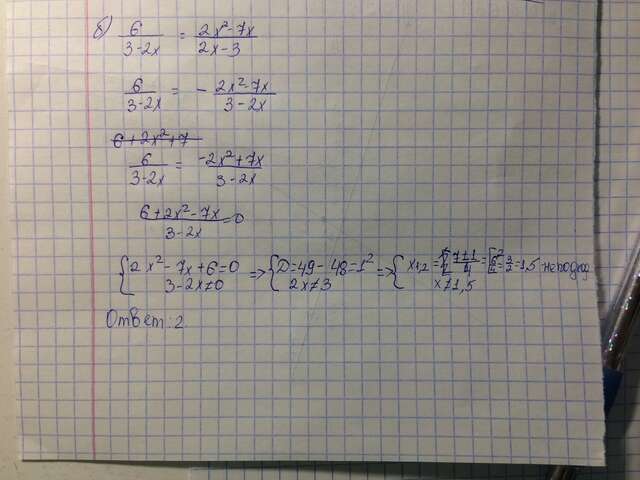 б) 6/(3-2x) = (2x²-7x)/(2x-3)
6/(3-2x) = - (2x²-7x)/(3-2x)
6+2x²+7
6/(3-2x) = (-2x²+7x)/(3-2x)
(6+2x²-7x)/(3-2x) = 0
{2x²-7x+6=0 => {D=49-48=1² => {x₁,₂ = (7±1)/4 = [2 6/4=3/2=1,5 не подход
3-2x≠0 2x≠3 x≠1,5
Ответ: 2.